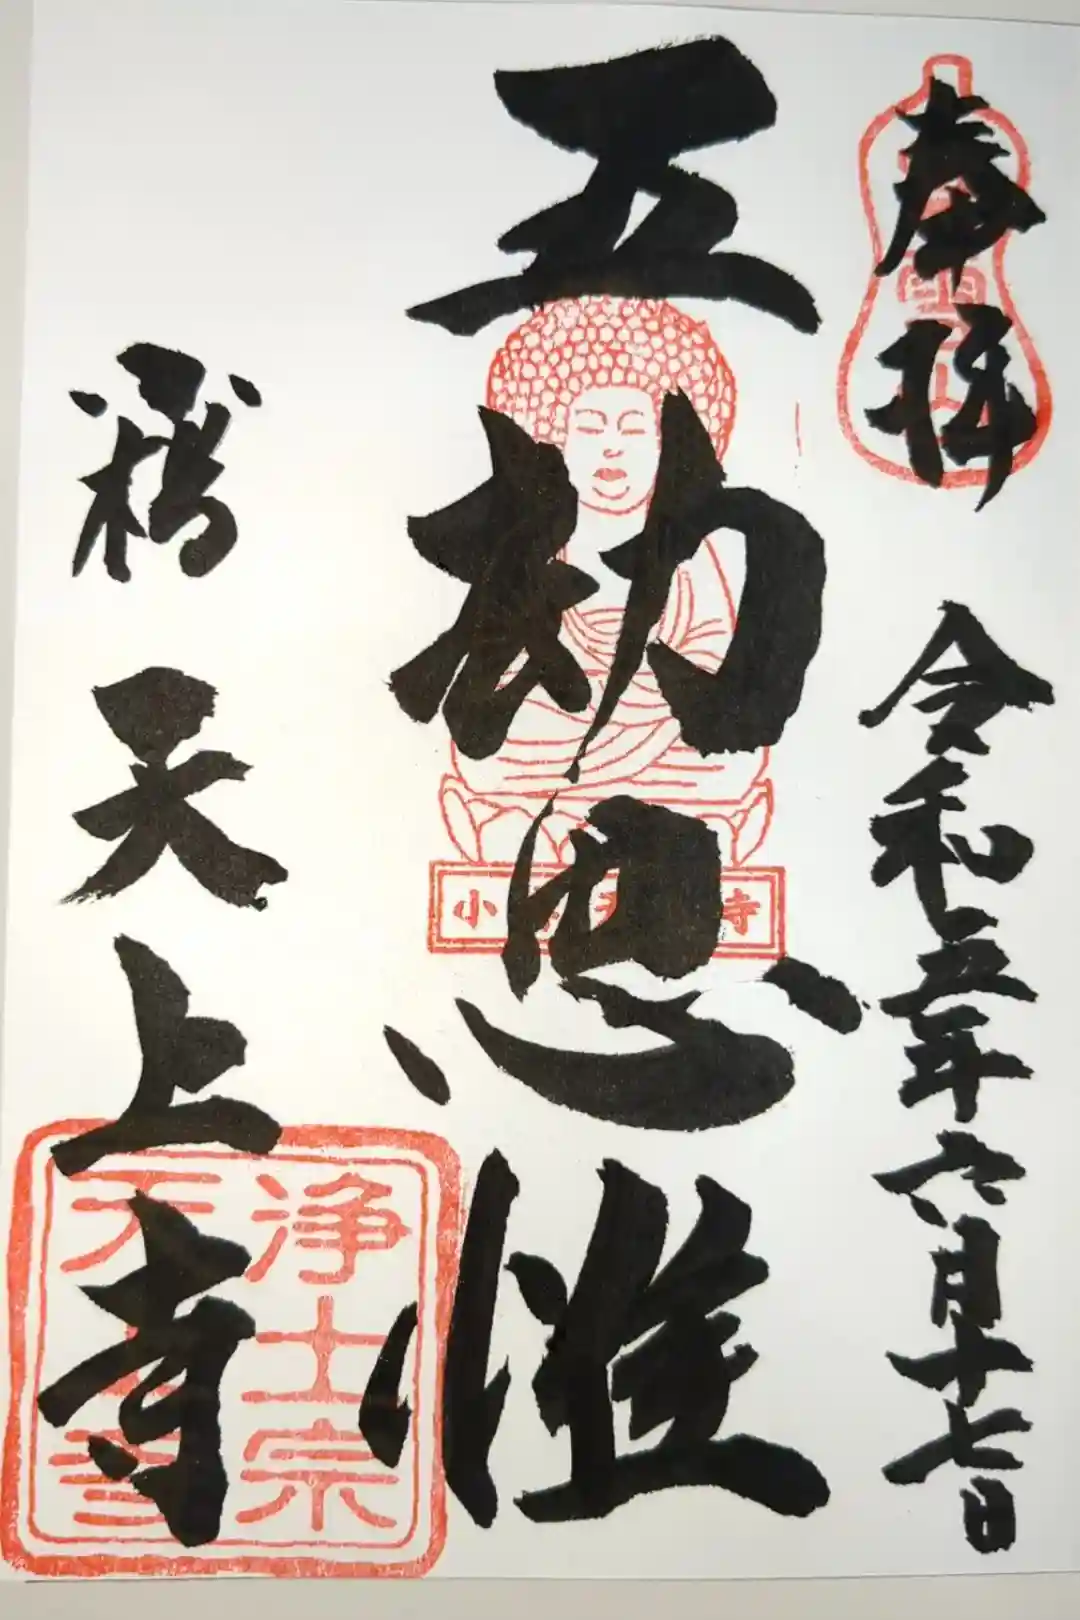 奉拝
令和五年六月十七日
五劫思惟
天上寺
小
寺
浄土宗
天